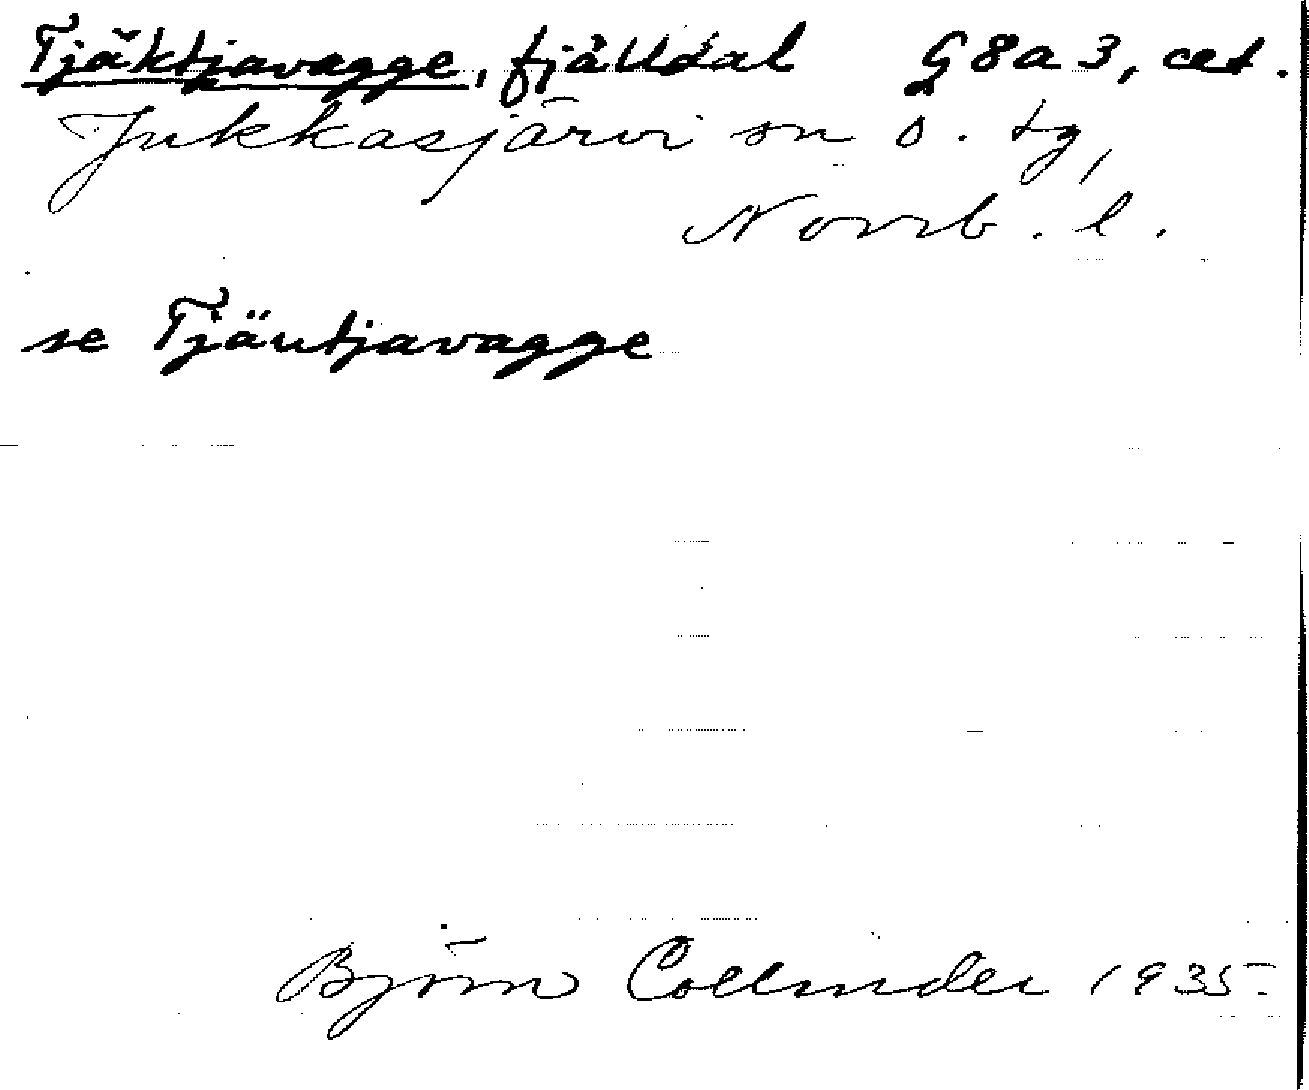 Tjäktjavagge, fjälldal G8a3, cet.
Jukkasjärvi sn o. tg,
Norrb. l.
se Tjäutjavagge
Björn Collinder 1935.